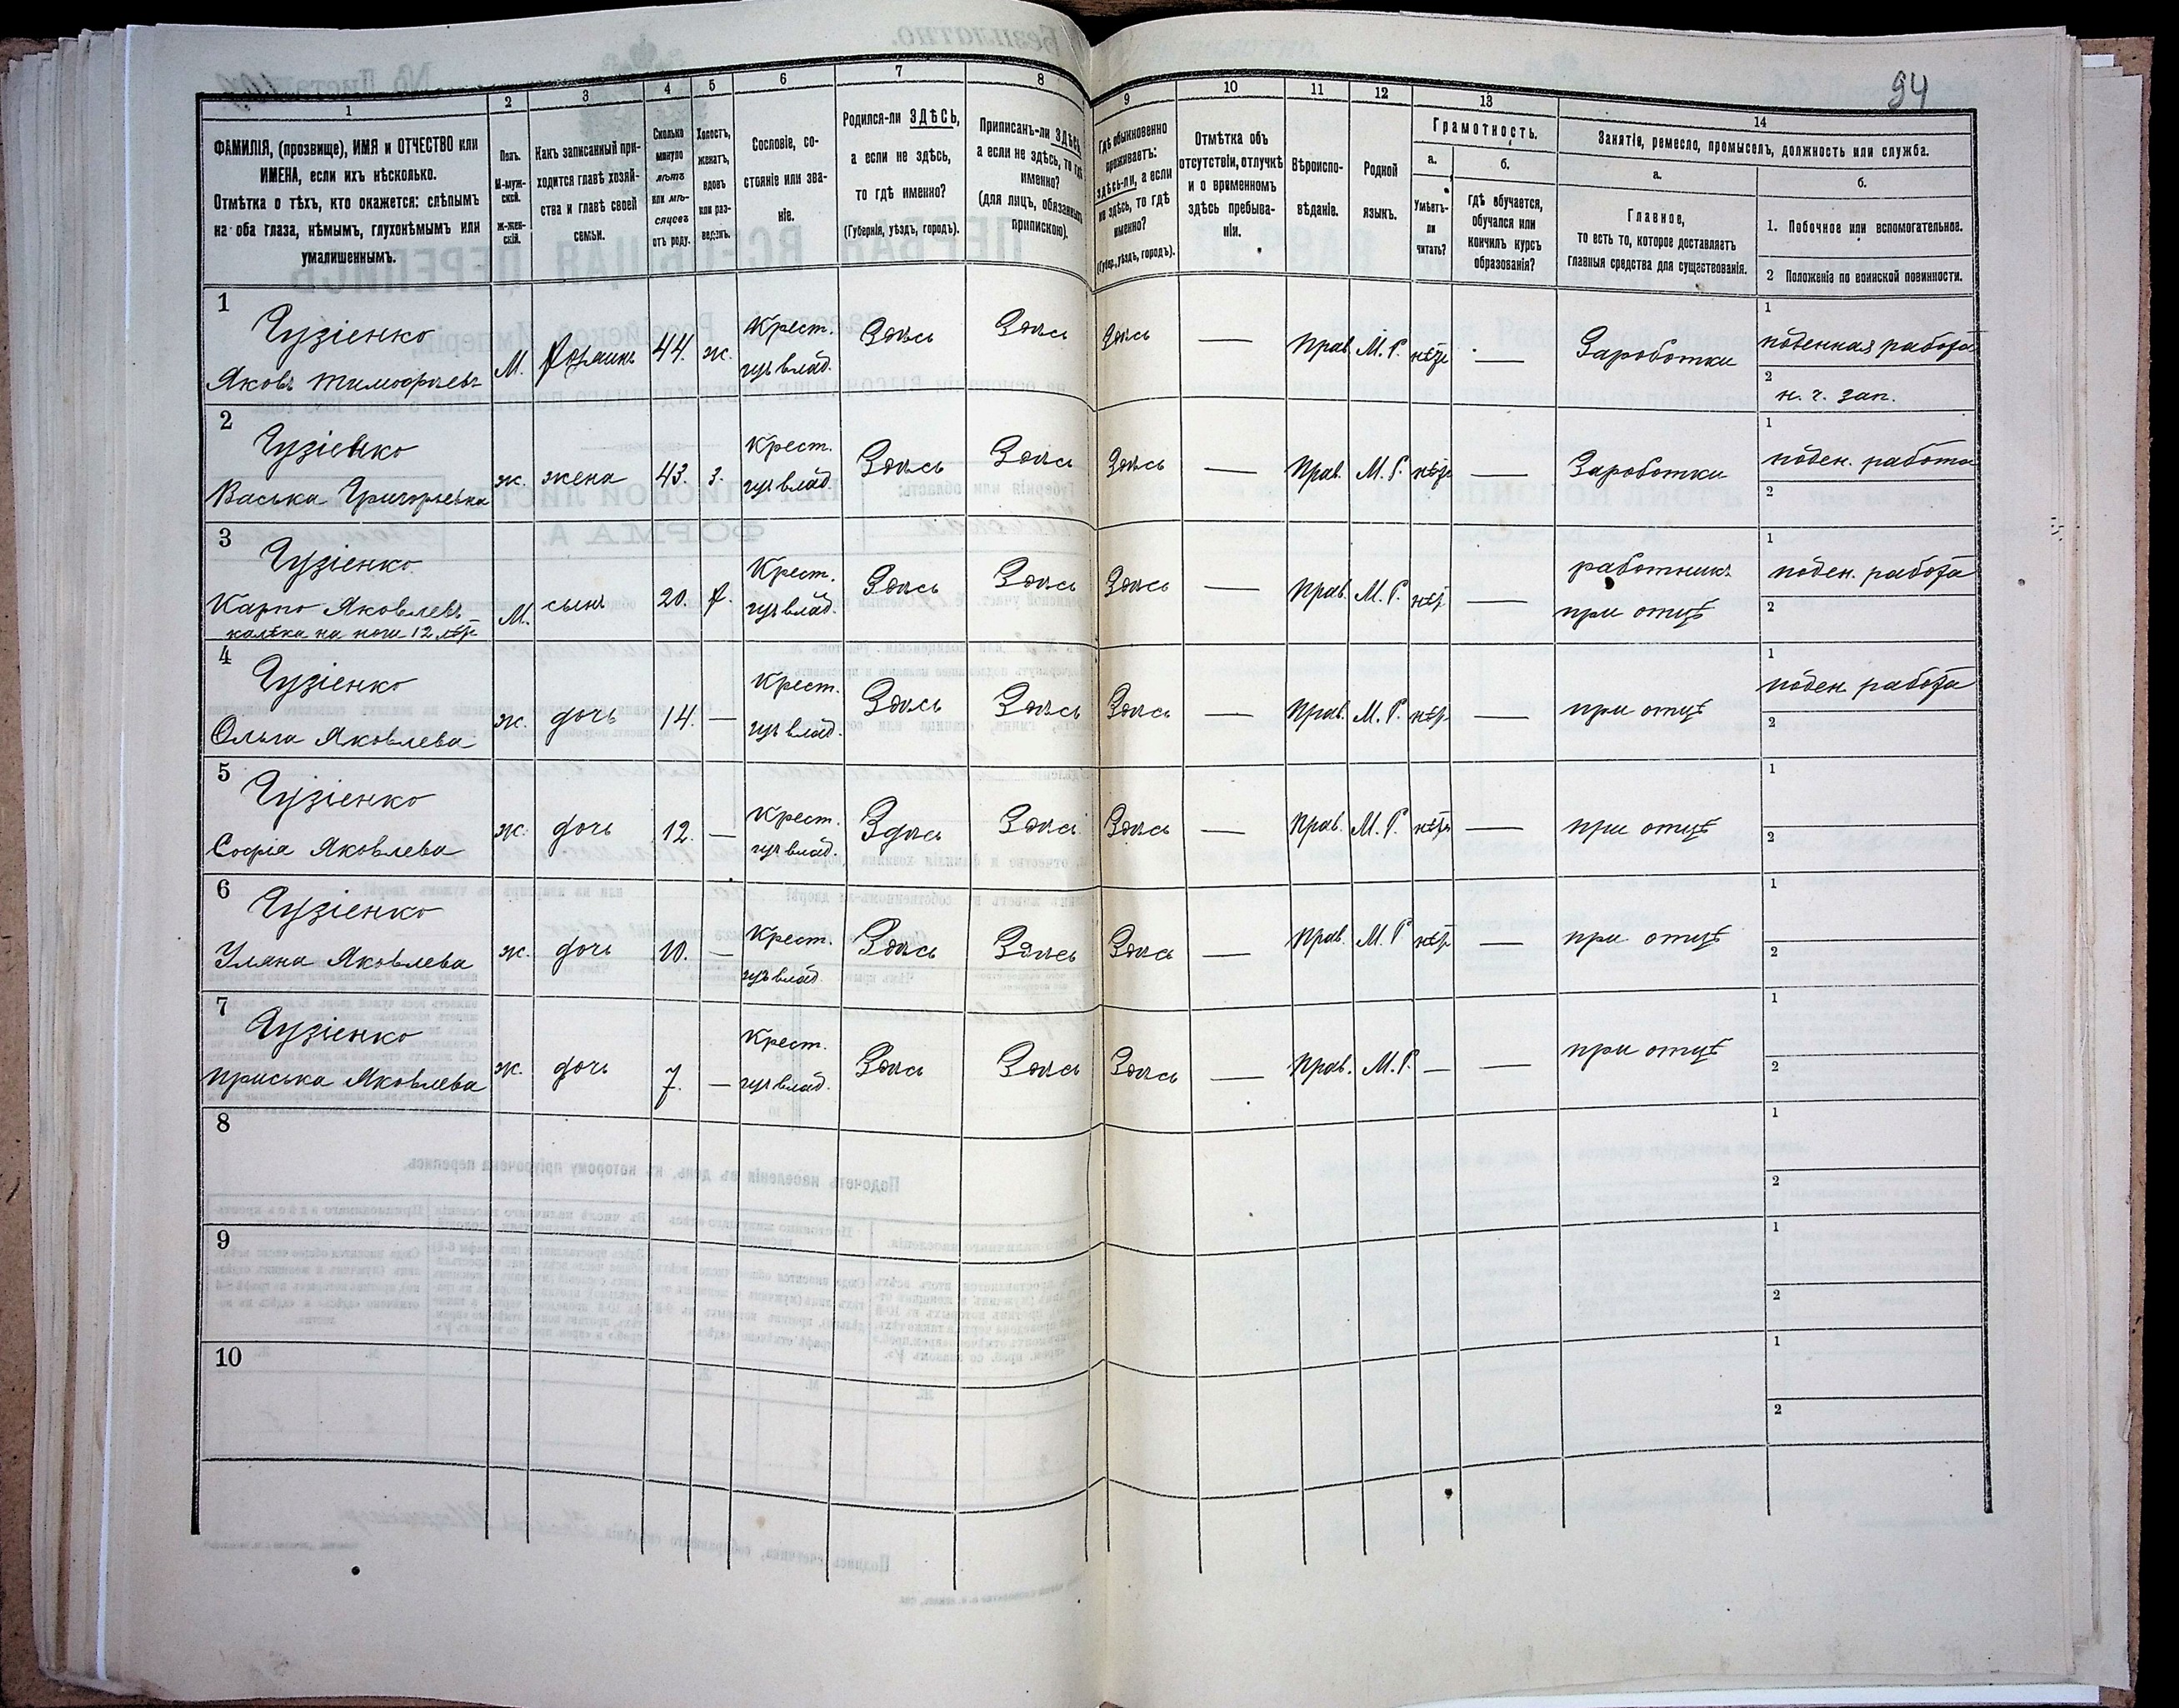 94
1
2
3
4
5
6
7
8
9
10
11
12
13
14
ФАМИЛІЯ, (прозвище), ИМЯ и ОТЧЕСТВО или
ИМЕНА, если ихъ нѣсколько.
Отмѣтка о тѣхъ, кто окажется: слѣпымъ
на оба глаза, нѣмымъ, глухонѣмымъ или
умалишеннымъ.
Полъ.
М-муж-
ской.
Ж-жен-
скій.
Какъ записанный при-
ходится главѣ хозяй-
ства и главѣ своей
семьи.
Сколько
минуло
лѣтъ
или мѣ-
сяцевъ
отъ роду.
Холостъ,
женатъ,
вдовъ
или раз-
веденъ.
Сословіе, со-
стояніе или зва-
ніе.
Родился-ли ЗДѢСЬ,
а если не здѣсь,
то гдѣ именно?
(Губернія, уѣздъ, городъ).
Приписанъ-ли ЗДѢСЬ,
а если не здѣсь, то гдѣ
именно?
(для лицъ, обязанныхъ
припискою).
Гдѣ обыкновенно
проживаетъ:
здѣсь-ли, а если
не здѣсь, то гдѣ
именно?
(Губер., уѣздъ, городъ).
Отмѣтка объ
отсутствіи, отлучкѣ
и о временномъ
здѣсь пребыва-
ніи.
Вѣроиспо-
вѣданіе.
Родной
языкъ.
Грамотность.
а.
Умѣетъ-
ли
читать?
б.
гдѣ обучается,
обучался или
кончилъ курсъ
образованія?
Занятія, ремесло, промыселъ, должность или служба.
а.
Главное,
то есть то, которое доставляетъ
главныя средства для существованія.
б.
1. Побочное или вспомогательное.
2 Положеніе по воинской повинности.
1
Чузіенко
Яковъ Тимофѣевъ
М. хозяинъ 44. ж.
Крест.
изъ влад.
Здѣсь Здѣсь Здѣсь — Прав. М. Р. нѣтъ — Заработки
1
поденная работа
2
н. ч. зап.
2
Чузіенко
Васька Григорьевна
ж. жена 43. з.
Крест.
изъ влад.
Здѣсь Здѣсь Здѣсь — Прав. М. Р. нѣтъ — Заработки
1
поден. работа
2
3
Чузіенко
Карпо Яковлевъ
калѣка на ноги 12 лѣтъ
М. сынъ 20. х.
Крест.
изъ влад.
Здѣсь Здѣсь Здѣсь — Прав. М. Р. нѣтъ —
работникъ
при отцѣ
1
поден. работа
2
4
Чузіенко
Ольга Яковлева
ж. дочь 14. —
Крест.
изъ влад.
Здѣсь Здѣсь Здѣсь — Прав. М. Р. нѣтъ — при отцѣ
1
поден. работа
2
5
Чузіенко
Софія Яковлева
ж. дочь 12. —
Крест.
изъ влад.
Здѣсь Здѣсь Здѣсь — Прав. М. Р. нѣтъ — при отцѣ
1
2
6
Чузіенко
Уляна Яковлева
ж. дочь 10. —
Крест.
изъ влад.
Здѣсь Здѣсь Здѣсь — Прав. М. Р. нѣтъ — при отцѣ
1
2
7
Чузіенко
Приська Яковлева
ж. дочь 7. —
Крест.
изъ влад.
Здѣсь Здѣсь Здѣсь — Прав. М. Р. — — при отцѣ
1
2
8
1
2
9
1
2
10
1
2